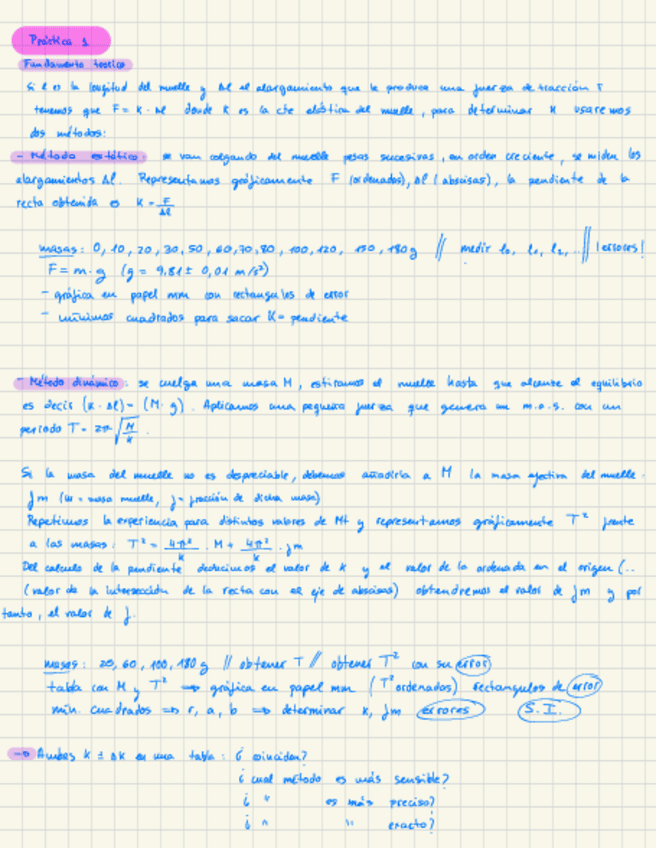 Práctica 1
Fundamento teórico
Si l es la longitud del muelle y Δl el alargamiento que le produce una fuerza de tracción F
tenemos que F = K · Δl donde K es la cte elástica del muelle, para determinar K usaremos
dos métodos:
- Método estático: se van colgando del muelle pesas sucesivas, en orden creciente, se miden los
alargamientos Δl. Representamos gráficamente F (ordenadas), Δl (abscisas), la pendiente de la
recta obtenida es K = F/Δl
masas: 0, 10, 20, 30, 50, 60, 70, 80, 100, 120, 150, 180 g // medir l₀, l₁, l₂, ... // ¡errores!
F = m · g (g = 9,81 ± 0,01 m/s²)
- gráfica en papel mm con rectángulos de error
- mínimos cuadrados para sacar K = pendiente
- Método dinámico: se cuelga una masa M, estiramos el muelle hasta que alcance el equilibrio
es decir (K · Δl) = (M · g). Aplicamos una pequeña fuerza que genera un m.o.s. con un
periodo T = 2π √(M/k).
Si la masa del muelle no es despreciable, debemos añadirla a M la masa efectiva del muelle.
fm (m = masa muelle, f = fracción de dicha masa)
Repetimos la experiencia para distintos valores de M y representamos gráficamente T² frente
a las masas: T² = 4π²/k · M + 4π²/k · fm
Del calculo de la pendiente deducimos el valor de k y el valor de la ordenada en el origen (..
(valor de la intersección de la recta con el eje de abscisas) obtendremos el valor de fm y por
tanto, el valor de f.
masas: 20, 60, 100, 180 g // obtener T // obtener T² con su error
tabla con M y T² ⇒ gráfica en papel mm (T² ordenados) rectangulos de error
min. cuadrados ⇒ r, a, b ⇒ determinar k, fm errores S.I.
→ Ambos k ± Δk en una tabla: ¿coinciden?
¿cual método es más sensible?
¿ " es más preciso?
¿ " " exacto?